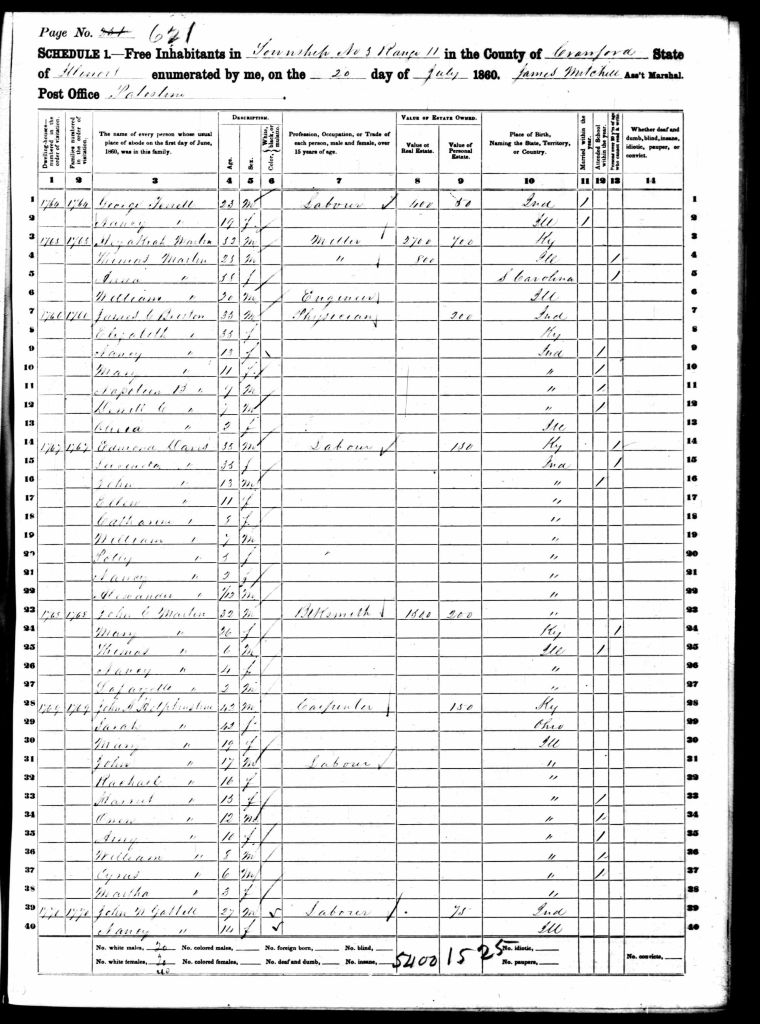 Page No. 621
SCHEDULE 1.—Free Inhabitants in Township No 3 Range 11 in the County of Crawford State
of Illinois enumerated by me, on the 20 day of July 1860. James Mitchell Ass't Marshal.
Post Office Palestine.
DESCRIPTION. VALUE OF ESTATE OWNED.
Dwelling-houses—numbered in the order of visitation. Families numbered in the order of visitation. The name of every person whose usual place of abode on the first day of June, 1860, was in this family. Age. Sex. Color, White, black, or mulatto. Profession, Occupation, or Trade of each person, male and female, over 15 years of age. Value of Real Estate. Value of Personal Estate. Place of Birth, Naming the State, Territory, or Country. Married within the year. Attended School within the year. Persons over 20 y'rs of age who cannot read & write. Whether deaf and dumb, blind, insane, idiotic, pauper, or convict.
1 2 3 4 5 6 7 8 9 10 11 12 13 14
1 1764 1764 George 23 M Labour 400 50 Ind 1 1
2 Nancy " 19 f Ill 1 2
3 1765 1765 Martin 32 M Miller 2700 700 Ky 3
4 Thomas Martin 23 M " 800 Ill 1 4
5 " f S Carolina 1 5
6 William " 20 M Engineer Ill 6
7 1766 1766 James C 33 M Physician 200 Ind 7
8 Elizabeth " 33 f Ky 8
9 Nancy " 13 f Ind 1 9
10 Mary " 11 f " 1 10
11 Napoleon B " 9 M " 1 11
12 " 7 M " 1 12
13 " 2 f Ill 13
14 1767 1767 Edmond Davis 35 M Labour 150 Ky 1 14
15 Lucinda " 35 f Ind 1 15
16 John " 13 M " 1 16
17 Ellen " 11 f " 17
18 Catharine " f " 18
19 William " 7 M " 19
20 Polly " f " 20
21 Nancy " 2 f " 21
22 Alexander " M " 22
23 1768 1768 John C Martin 32 M Blksmith 1500 200 " 23
24 Mary " 26 f Ky 1 24
25 Thomas " 6 M Ill 1 25
26 Nancy " 4 f " 26
27 Lafayette " 2 M " 27
28 1769 1769 John 42 M Carpenter 150 Ky 28
29 Sarah " 42 f Ohio 29
30 Mary " 19 f Ill 30
31 John " 17 M Labour " 31
32 Rachael " 16 f " 32
33 Harriet " 13 f " 1 33
34 Owen " 12 M " 1 34
35 Amy " 10 f " 1 35
36 William " 8 M " 1 36
37 Cyrus " 6 M " 1 37
38 Martha " 3 f " 38
39 1770 1770 John W 27 M Labourer 75 Ind 39
40 Nancy " f Ill 40
No. white males, 20 No. colored males, No. foreign born, No. blind, 5400 1525 No. idiotic,
No. white females, 20 No. colored females, No. deaf and dumb, No. insane, No. paupers, No. convicts,
40